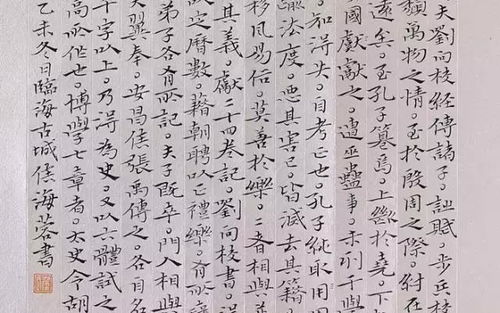 夫劉向校經傳諸子。詩賦。步兵校
類萬物之情。至於殷周之際。紂在
遠矣。至孔子篹焉。上斷於堯。下
國獻獻之。遭巫蠱事。未列于學
知得失。自考正也。孔子純取周
諭法度。惡其害己。皆滅去其籍
移風易俗。莫善於樂。二者相與
其義。獻二十四卷記。劉向校書。得
定曆數。藉朝聘以正禮樂。有所
弟子各有所記。夫子既卒。門人相與
翼奉。安昌侯張禹傳之。各自名
千字以上。乃得為史。又以六體試之
高所作也。博學七章者。太史令胡
乙未冬日臨海古城侯海蓉書